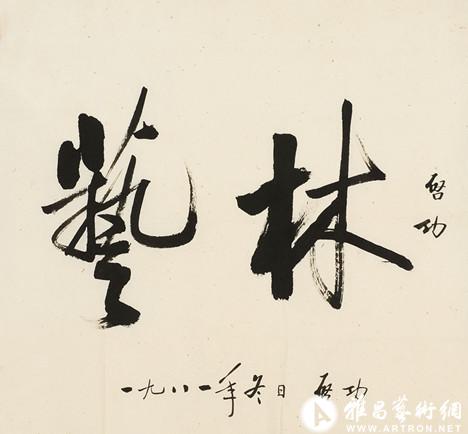 藝林
啓功
一九八一年冬日 啓功
雅昌藝術網
WWW.ARTRON.NET